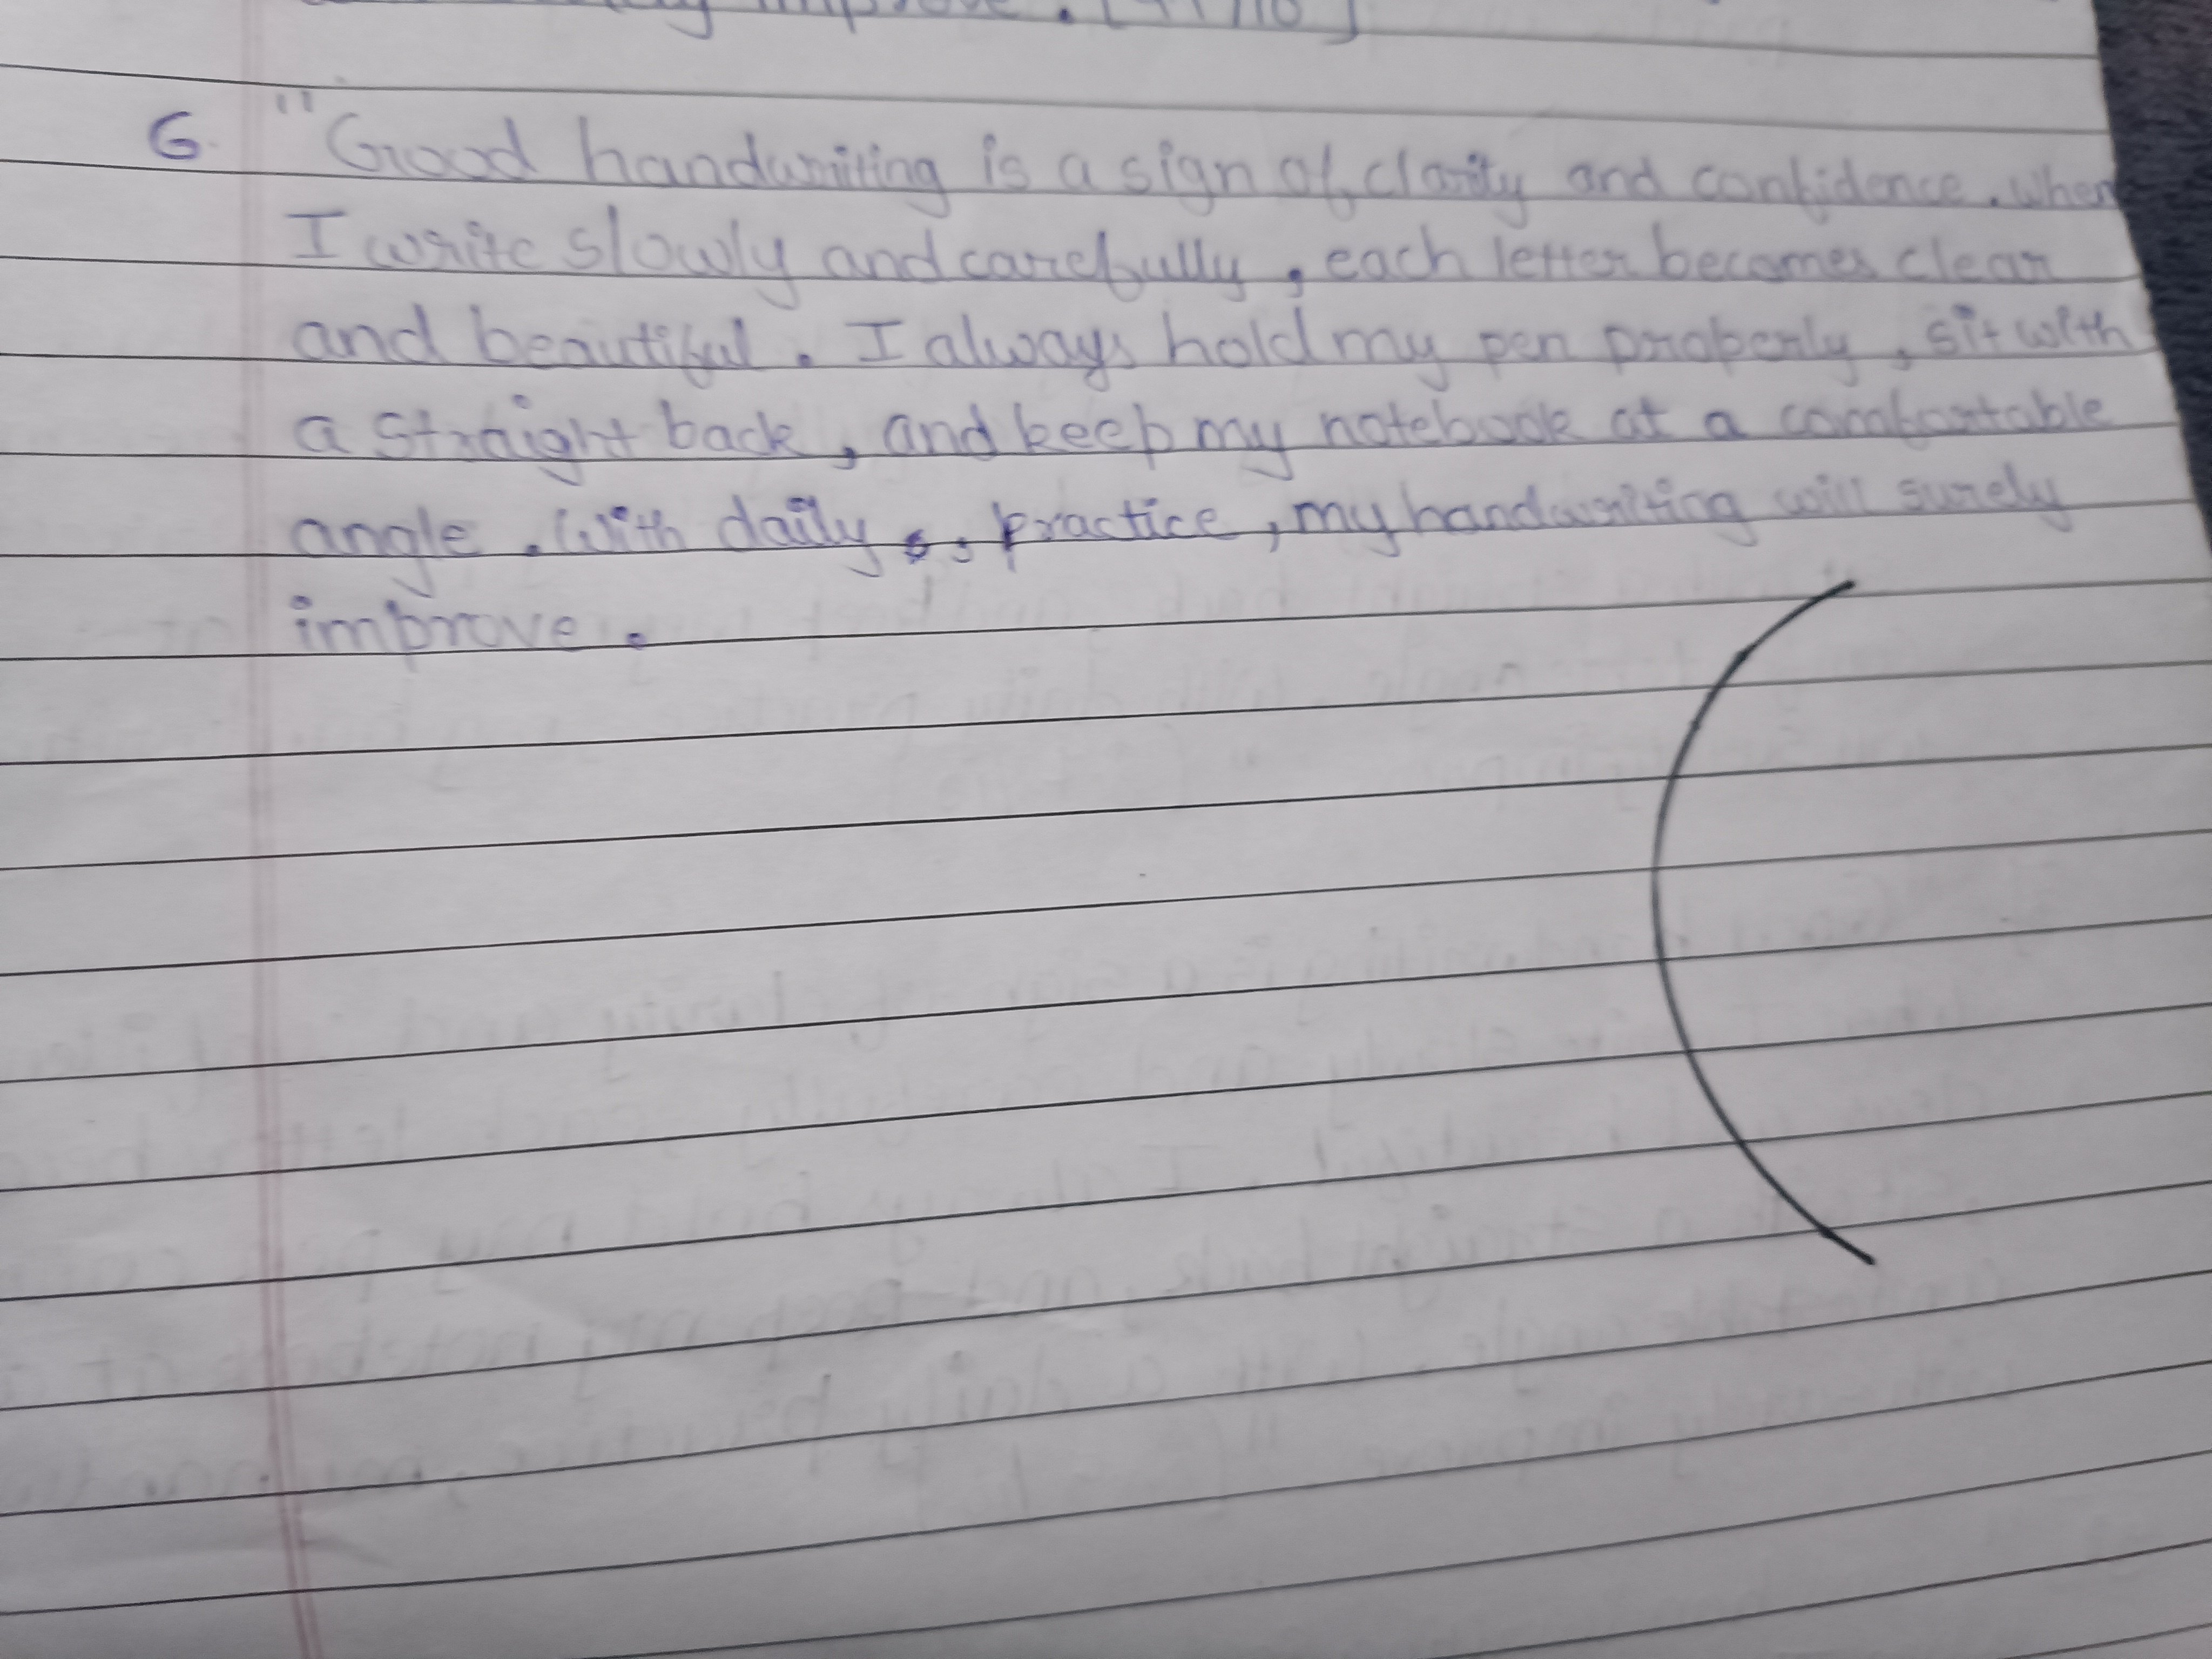 improve . [
6. "Good handwriting is a sign of clarity and confidence. when
I write slowly and carefully, each letter becomes clear
and beautiful. I always hold my pen properly, sit with
a straight back, and keep my notebook at a comfortable
angle. With daily , practice, my handwriting will surely
improve.